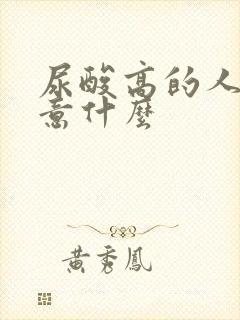 尿酸高的人
意什麼
黃秀鳳